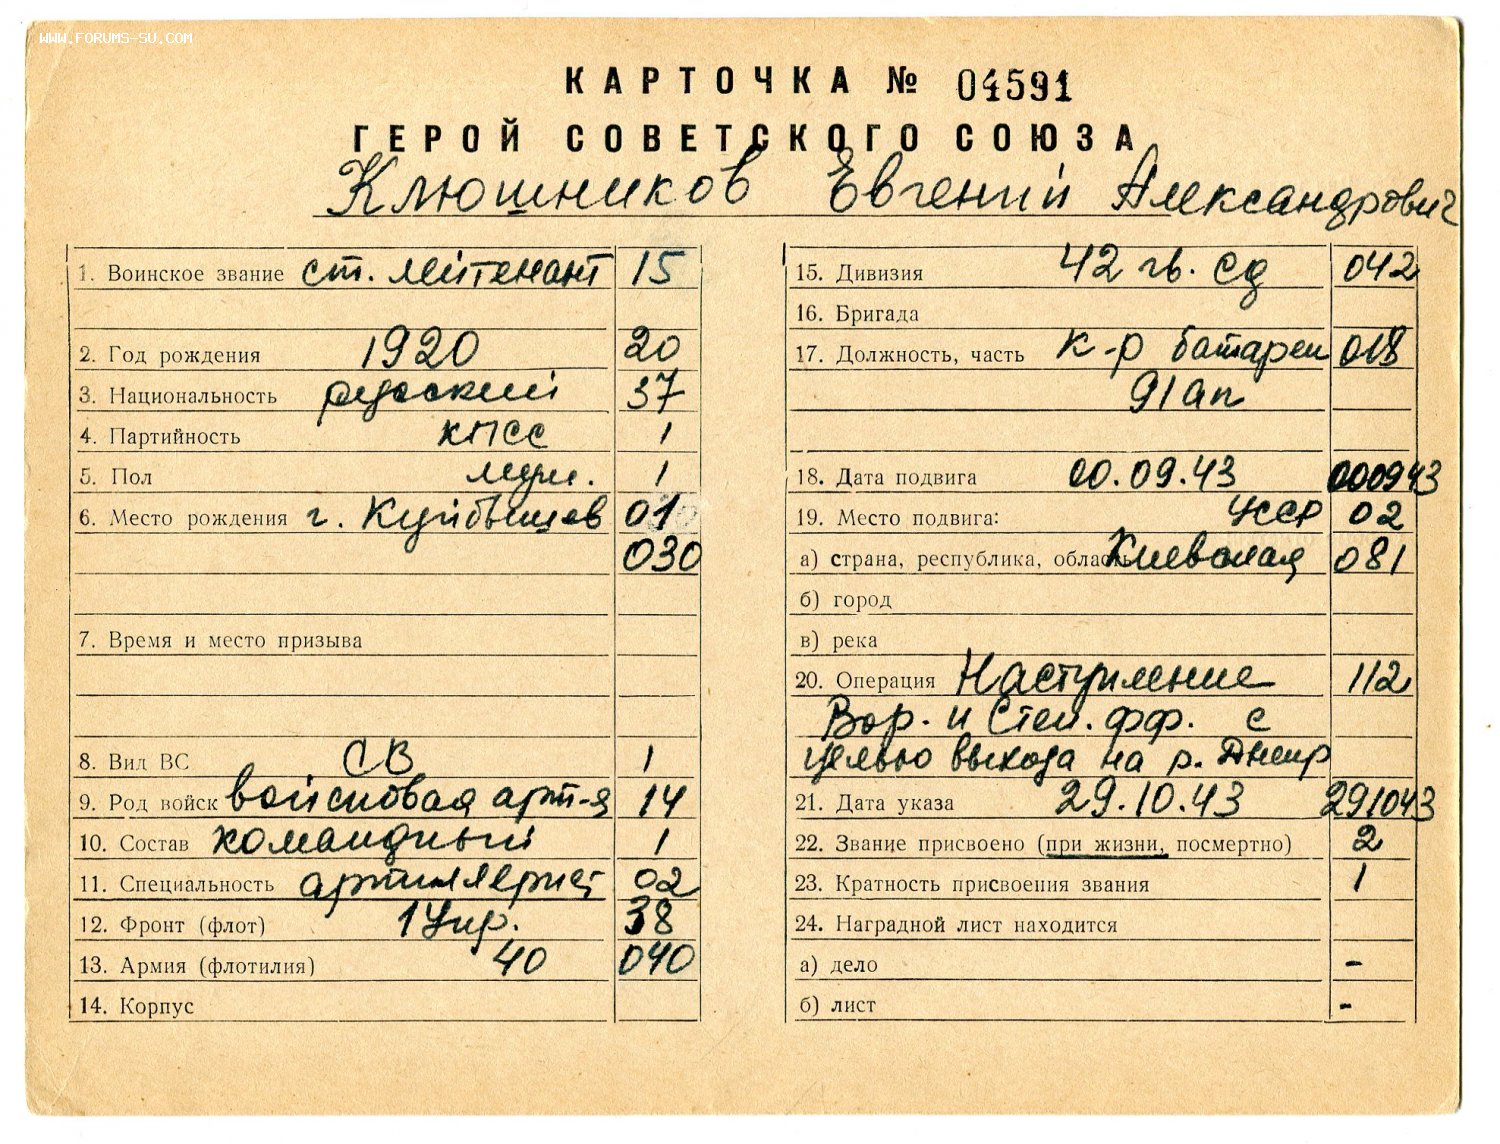 WWW.FORUMS-SU.COM
КАРТОЧКА № 04591
ГЕРОЙ СОВЕТСКОГО СОЮЗА
Клюшников Евгений Александрович
1. Воинское звание ст. лейтенант 15
2. Год рождения 1920 20
3. Национальность русский 37
4. Партийность КПСС 1
5. Пол муж. 1
6. Место рождения г. Куйбышев 01
030
7. Время и место призыва
8. Вид ВС СВ 1
9. Род войск войсковая арт-я 14
10. Состав командный 1
11. Специальность артиллерист 02
12. Фронт (флот) 1 Укр. 38
13. Армия (флотилия) 40 040
14. Корпус
15. Дивизия 42 гв. сд 042
16. Бригада
17. Должность, часть к-р батареи 018
91 ап
18. Дата подвига 00.09.43 000943
19. Место подвига: УССР 02
а) страна, республика, область Киевская 081
б) город
в) река
20. Операция Наступление 112
Вор. и Степ. фф. с
целью выхода на р. Днепр
21. Дата указа 29.10.43 291043
22. Звание присвоено (при жизни, посмертно) 2
23. Кратность присвоения звания 1
24. Наградной лист находится
а) дело -
б) лист -